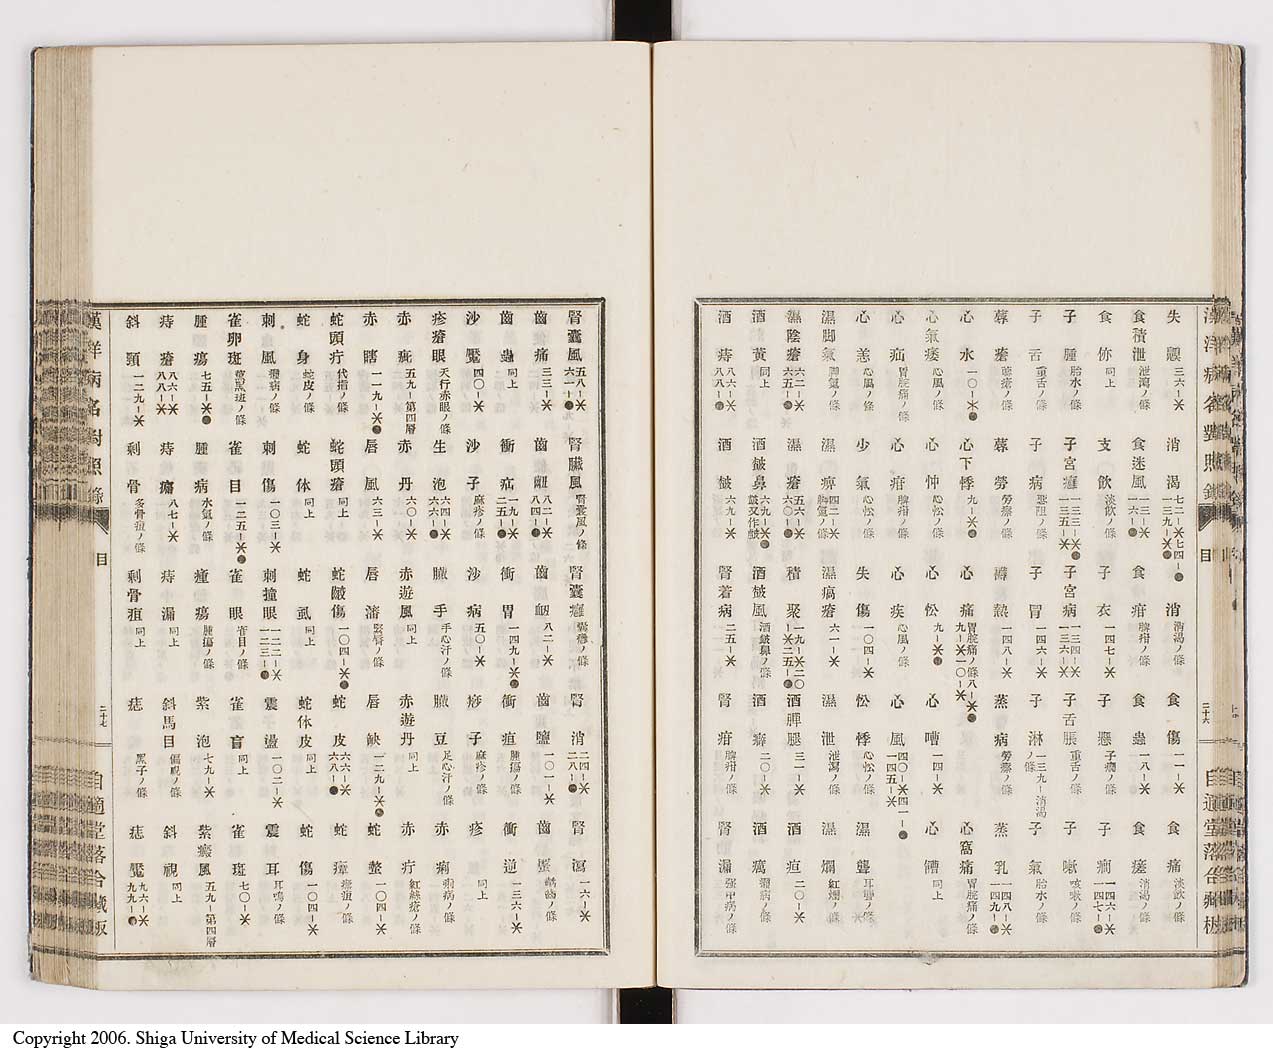 失 三六-米
消渇 七二-米七四-● 一三九-米●
消 消渇ノ條
食傷 一一-米
食痛 淡飲ノ條
食積泄 泄瀉ノ條
食迷風 一六-●
食疳 脾疳ノ條
食蟲 一八-米
食㾾 消渇ノ條
食㑊 同上
支飲 淡飲ノ條
子衣 一四七-米
子懸 子癇ノ條
子癇 一四六-米 一四七-●
子腫 胎水ノ條
子宮癰 一三三-米● 一三五-米
子宮病 一三四-米 一三六-米
子舌脹 重舌ノ條
子嗽 咳嗽ノ條
子舌 重舌ノ條
子病 惡阻ノ條
子冒 一四六-米
子淋 一三九-消渇ノ條
子氣 胎水ノ條
蓐勞 勞瘵ノ條
蓐熱 一四八-米
蒸病 勞瘵ノ條
蒸乳 一四八-米 一四九-●
心水 一〇-米●
心下悸 九-米●
心痛 胃脘痛ノ條八-米● 九-米一〇-米
心窩痛 胃脘痛ノ條
心氣痿 心風ノ條
心忡 心忪ノ條
心忪 九-米●
心嘈 一四-米
心㿋 胃脘痛ノ條
心疳 脾疳ノ條
心疾 心風ノ條
心風 四〇-米四一-● 一四五-米
心恙 心風ノ條
少氣 心忪ノ條
失傷 一〇四-米
忪悸 心忪ノ條
濕聾 耳聾ノ條
濕脚氣 脚氣ノ條
濕痺 四二-米 脚氣ノ條
濕瘑瘡 六一-米
濕泄 泄瀉ノ條
濕爛 紅爛ノ條
濕陰瘡 六二-米 六五-●
濕瘡 五六-米 六〇-●
積聚 一九-米二〇 -米二五-●
酒脾腿 三一-米
酒疸 二〇-米
酒黃 同上
酒皶鼻 六九-米● 皶又作皻
酒皶風 酒皶鼻ノ條
酒癖 二〇-米
酒癘 癩病ノ條
酒痔 八六-米 八八-●
酒皶 六九-米
腎着病 二五-米
腎疳 脾疳ノ條
腎漏 強中病ノ條
漢洋病名對照錄 目 二十六 自適堂落合藏板
腎囊風 五八-米 六一-●
腎臟風 腎囊風ノ條
腎囊癰 囊癰ノ條
腎消 二四-米 二八-●
腎瀉 一六-米
齒痛 三三-米
齒齨 八二-米 八四-●
齒衂 八二-米
齒䘌 一〇一-米
齒蟨 齲齒ノ條
齒蟲 同上
衝疝 一九-米 二五-●
衝胃 一四九-米●
衝疽 腫瘍ノ條
衝逆 一三六-米
沙翳 四〇-米
沙子 麻疹ノ條
沙病 五〇-米
痧子 麻疹ノ條
疹 同上
疹瘡眼 天行赤眼ノ條
生泡 六四-米 六六-●
䐜手 手心汗ノ條
䐜豆 足心汗ノ條
赤痢 痢病ノ條
赤疵 五九-第四層
赤丹 六〇-米
赤遊風 同上
赤遊丹 同上
赤疔 紅絲瘡ノ條
赤瞎 一一九-米●
唇風 六三-米
唇瀋 緊唇ノ條
唇缺 一二九-米●
蛇螫 一〇四-米
蛇頭疔 代指ノ條
蛇頭瘡 同上
蛇皶傷 一〇四-米●
蛇皮 六六-米 六八-●
蛇瘴 瘴疽ノ條
蛇身 蛇皮ノ條
蛇体 同上
蛇虱 同上
蛇休皮 同上
蛇傷 一〇四-米
刺風 癩病ノ條
刺傷 一〇三-米
刺撞眼 一二二-米 一二三-●
震盪 一〇二-米
震耳 耳鳴ノ條
雀卵斑 黧黑斑ノ條
雀目 一二五-米●
雀眼 雀目ノ條
雀盲 同上
雀斑 七〇-米
腫瘍 七五-米●
腫病 水氣ノ條
瘇瘍 腫瘍ノ條
紫泡 七九-米
紫癜風 五九-第四層
痔瘡 八六-米 八八-米
痔痛 八七-米
痔漏 同上
斜馬目 偏視ノ條
斜視 同上
斜頸 一二九-米
剩骨 多骨疽ノ條
剩骨疽 同上
痣 黑子ノ條
痣翳 九六-米 九九-●
漢洋病名對照錄 目 二十七 自適堂落合藏板
Copyright 2006. Shiga University of Medical Science Library